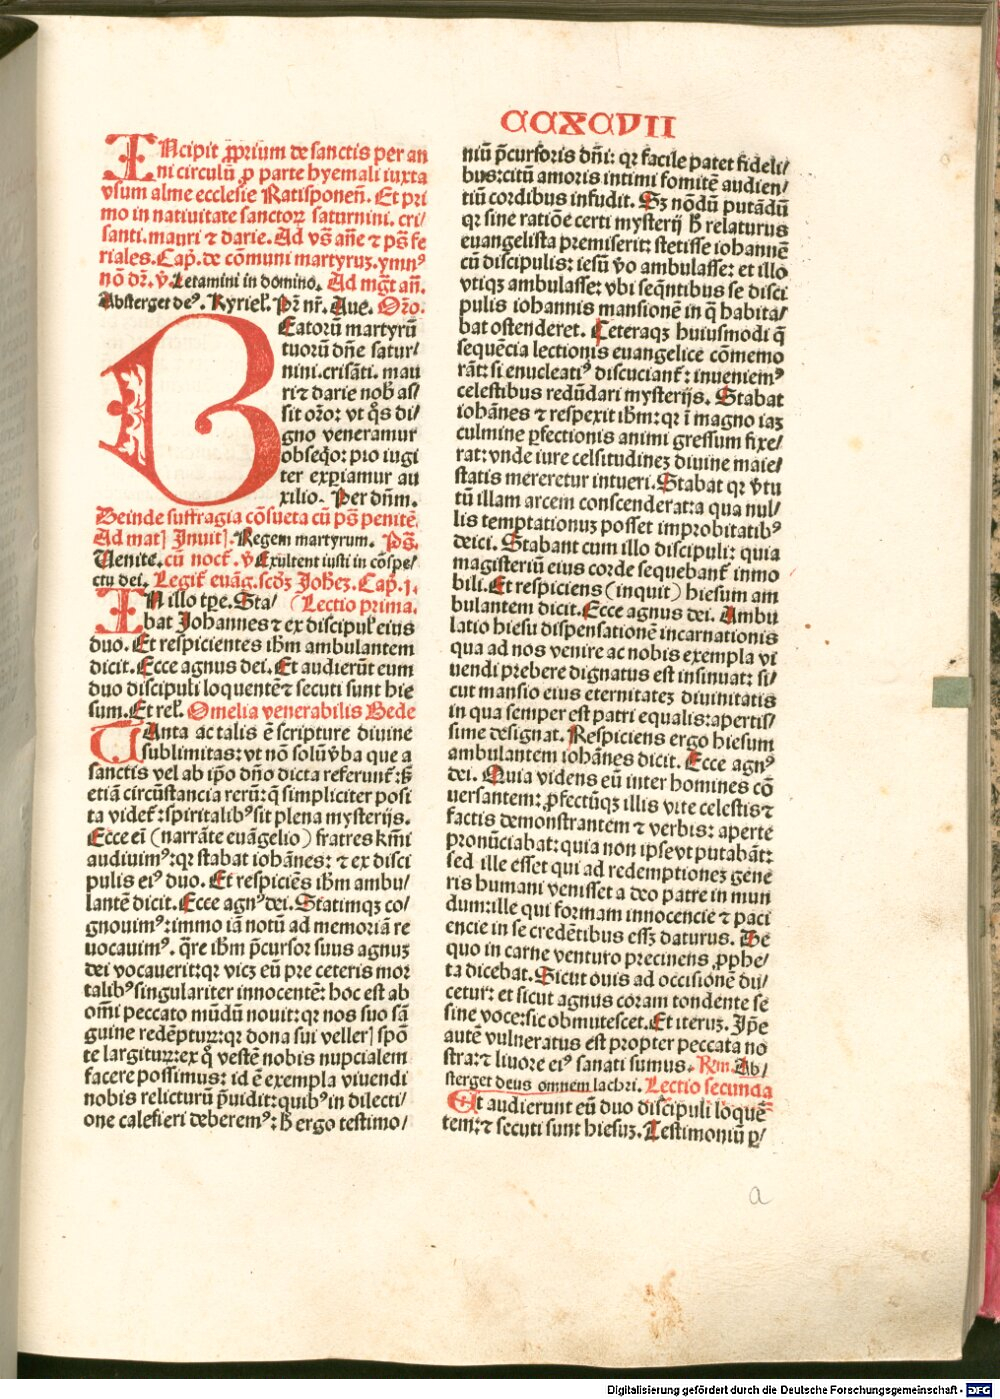 CCXCVII
INcipit ꝓprium de sanctis per an
ni circulū ꝑ parte hyemali iuxta
vsum alme ecclesie Ratisponeñ. Et pri
mo in natiuitate sanctoꝝ saturnini. cri/
santi. mauri ⁊ darie. Ad vs̄ añe ⁊ ps̄ fe
riales. Cap̄. de cōmuni martyruꝫ. ymnꝰ
nō dr̄. v̄. Letamini in domino. Ad mgt̄ añ.
Absterget deꝰ. Kyriel̄. Pr̄ nr̄. Aue. Orō.
BEatorū martyrū
tuorū dn̄e satur/
nini. crisāti. mau
ri ⁊ darie nob̄ as/
sit orōꝛ vt q̄s di/
gno veneramur
obseq̄oꝛ pio iugi
ter expiamur au
xilio. Per dn̄m.
Deinde suffragia cōsueta cū ps̄ penitē.
Ad mat] Inuit]. Regem martyrum. Ps̄.
Uenite. cū noct̄. v̄ Exultent iusti in cōspe/
ctu dei. Legit̄ euāg. scd̄ꝫ Joh̄eꝫ. Cap̄. j.
IN illo tp̄e. Sta/ (Lectio prima.
bat Johannes ⁊ ex discipul̄ eius
duo. Et respicientes ih̄m ambulantem
dicit. Ecce agnus dei. Et audierūt eum
duo discipuli loquentē⁊ secuti sunt hie
sum. Et rel̄. Omelia venerabilis Bede
TAnta ac talis ē scripture diuine
sublimitas: vt nō solū v̄ba que a
sanctis vel ab ip̄o dn̄o dicta referunt̄: s̄
etiā circūstancia rerū: q̄ simpliciter posi
ta videt̄: spiritalibꝰ sit plena mysterijs.
Ecce ei̅ (narrāte euāgelio) fratres km̄i
audiuimꝰ: qꝛ stabat iohānes: ⁊ ex disci
pulis eiꝰ duo. Et respiciēs ih̄m ambu/
lantē dicit. Ecce agnꝰ dei. Statimqꝫ co/
gnouimꝰ: immo iā notū ad memoriā re
uocauimꝰ. q̄re ih̄m p̄cursoꝛ suus agnuꝫ
dei vocauerit: qꝛ vicꝫ eū pre ceteris moꝛ
talibꝰ singulariter innocentē: hoc est ab
om̄i peccato mūdū nouit: qꝛ nos suo sā
guine redēpturꝰ: qꝛ dona sui veller] spō
te largiturꝰ: ex q̄ vestē nobis nupcialem
facere possimus: id ē exempla viuendi
nobis relicturū p̄uidit: quibꝰ in dilecti/
one calefieri deberemꝰ: H̄ ergo testimo/
niū p̄cursoris dn̄i: qꝛ facile patet fideli/
bus: citū amoris intimi fomitē audien/
tiū cordibus infudit. Sꝫ nōdū putādū
qꝛ sine ratiōe certi mysterij h̄ relaturus
euangelista premiserit: stetisse iohannē
cū discipulis: iesū v̄o ambulasse: et illo
vtiqꝫ ambulasse: vbi seq̄ntibus se disci
pulis iohannis mansionē in q̄ habita/
bat ostenderet. Ceteraqꝫ huiusmodi q̄
sequēcia lectionis euangelice cōmemo
rāt: si enucleatiꝰ discuciant̄: inueniemꝰ
celestibus redūdari mysterijs. Stabat
iohānes ⁊ respexit ih̄m: qꝛ i magno iaꝫ
culmine ꝑfectionis animi gressum fixe/
rat: vnde iure celsitudineꝫ diuine maie/
statis mereretur intueri. Stabat qꝛ v̄tu
tū illam arcem conscenderat: a qua nul/
lis temptationuꝫ posset improbitatibꝰ
deici. Stabant cum illo discipuli: quia
magisteriū eius corde sequebant̄ inmo
bili. Et respiciens (inquit) hiesum am
bulantem dicit. Ecce agnus dei. Ambu
latio hiesu dispensationē incarnationis
qua ad nos venire ac nobis exempla vi
uendi prebere dignatus est insinuat: si/
cut mansio eius eternitateꝫ diuinitatis
in qua semper est patri equalis: apertis/
sime designat. Respiciens ergo hiesum
ambulantem iohānes dicit. Ecce agnꝰ
dei. Quia videns eū inter homines cō
uersantem: ꝓfectūqꝫ illis vite celestis ⁊
factis demonstrantem ⁊ verbis: aperte
pronūciabat: quia non ipse vt putabāt:
sed ille esset qui ad redemptioneꝫ gene
ris humani venisset a deo patre in mun
dum: ille qui formam innocencie ⁊ paci
encie in se credētibus essꝫ daturus. De
quo in carne venturo precinens ꝓphe/
ta dicebat. Sicut ouis ad occisionē du/
cetur: et sicut agnus coram tondente se
sine voce: sic obmutescet. Et iteruꝫ. Ip̄e
autē vulneratus est propter peccata no
stra: ⁊ liuore eiꝰ sanati sumus. Rm̄. Ab/
sterget deus omnem lachri. Lectio secunda
Et audierunt eū duo discipuli loquē
tem: ⁊ secuti sunt hiesuꝫ. Testimoniū ꝑ/
a
Digitalisierung gefördert durch die Deutsche Forschungsgemeinschaft - DFG